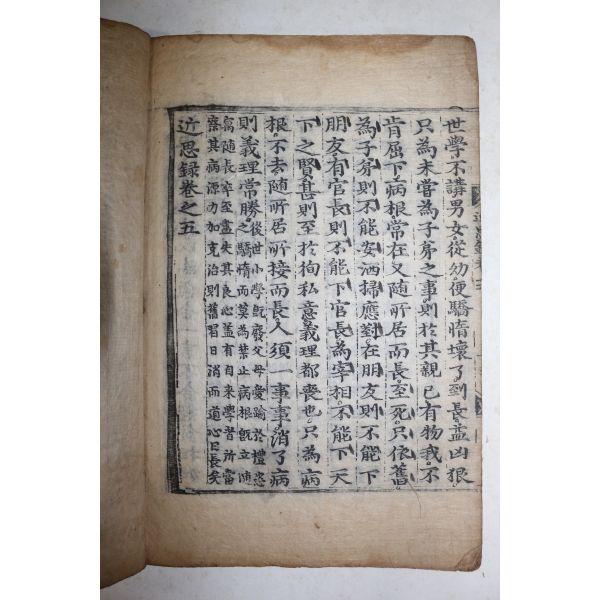 世學不講男女從幼便驕惰壞了到長益凶狠
只為未嘗為子弟之事則於其親已有物我不
肯屈下病根常在又隨所居而長至死只依舊
為子弟則不能安洒掃應對在朋友則不能下
朋友有官長則不能下官長為宰相不能下天
下之賢甚則至於徇私意義理都喪也只為病
根不去隨所居所接而長人須一事事消了病
則義理常勝後世小學旣廢父母愛踰於禮恣之驕惰而莫為禁止病根旣立隨
寓隨長卒至盡失其良心蓋有自来學者所當
察其病源力加克治則舊習日消而道心日長矣
近思録卷之五